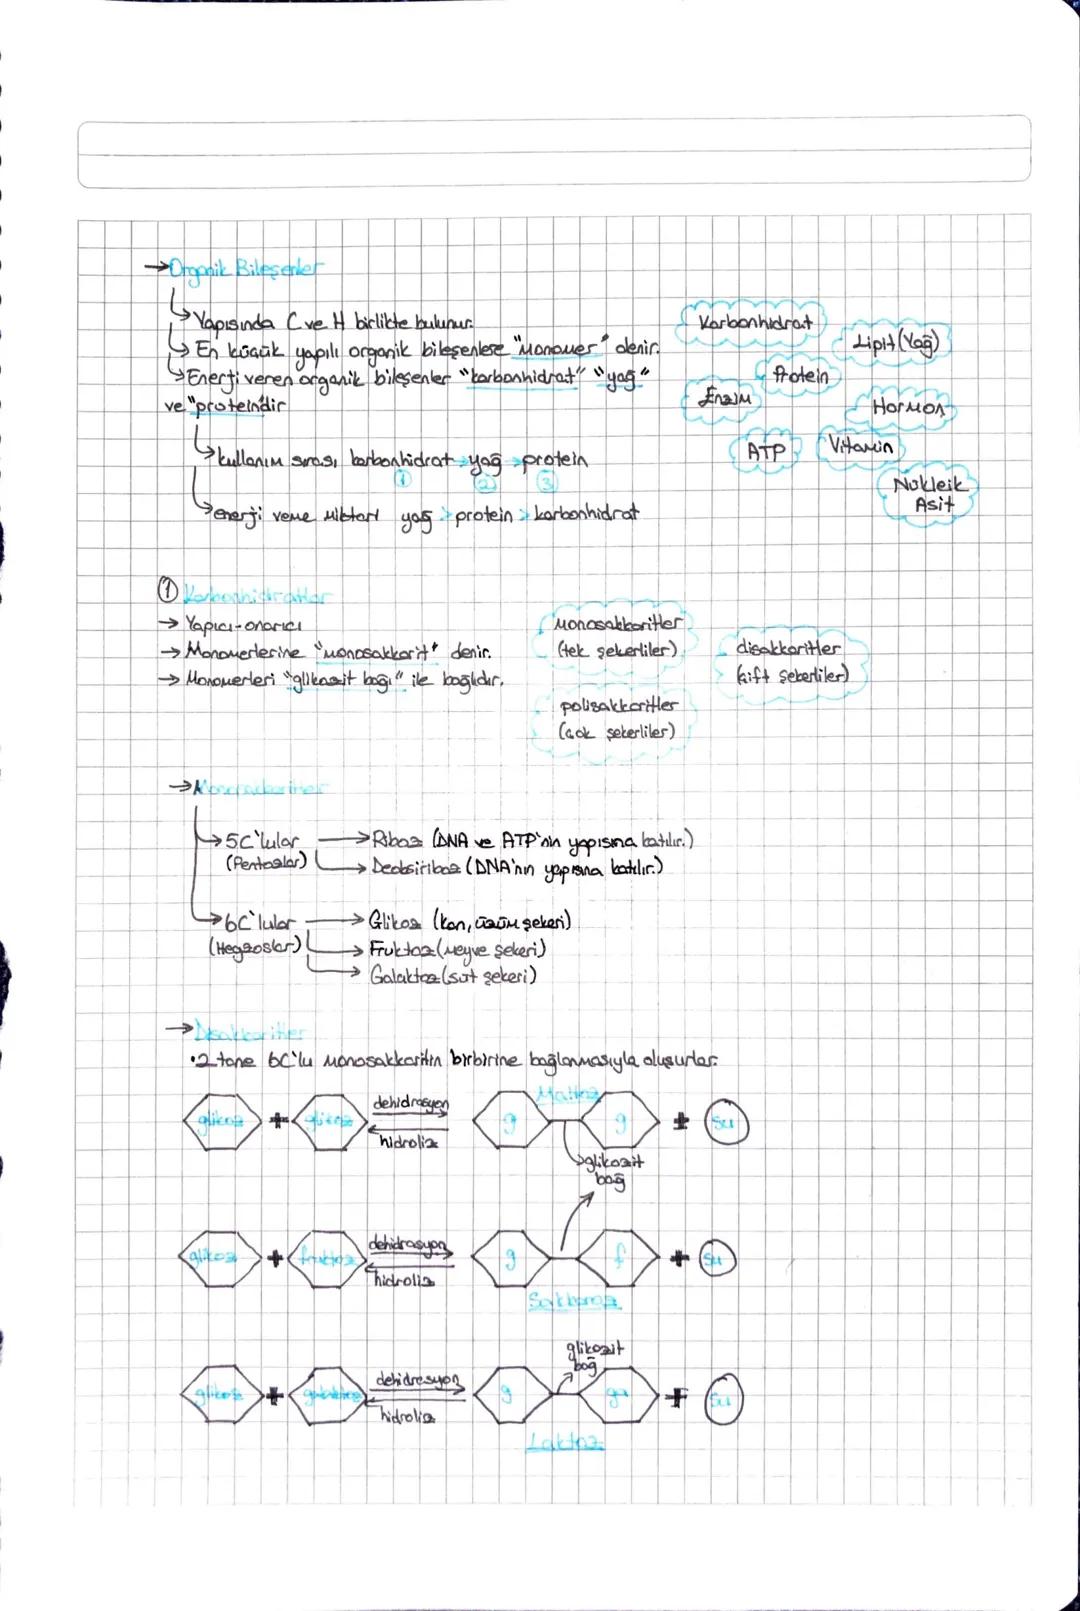 →Organik Bileşenler
↳Yapısında C ve H birlikte bulunur.
↳En küçük yapılı organik bileşenlere "Monomer" denir.
↳Enerji veren organik bileşenler "karbonhidrat" "yağ"
ve "protein"dir
↳kullanım sırası karbonhidrat > yağ > protein
① ② ③
↳enerji verme miktarı yağ > protein > karbonhidrat
Karbonhidrat
Lipit (Yağ)
Protein
Enzim
Hormon
ATP
Vitamin
Nükleik
Asit
① Karbonhidratlar
→ Yapıcı-onarıcı
→ Monomerlerine "monosakkarit" denir.
→ Monomerleri "glikozit bağı" ile bağlıdır.
Monosakkaritler
(tek şekerliler)
disakkaritler
(çift şekerliler)
polisakkaritler
(çok şekerliler)
→Monosakkaritler
→5C'lular →Riboz (DNA ve ATP'nin yapısına katılır.)
(Pentozlar) →Deoksiriboz (DNA'nın yapısına katılır.)
→6C'lular →Glikoz (kan, üzüm şekeri)
(Hegzoslar) →Fruktoz (meyve şekeri)
→Galaktoz (süt şekeri)
→Disakkaritler
•2 tane 6C'lu monosakkaritin birbirine bağlanmasıyla oluşurlar.
glikoz + glikoz dehidrasyon g Maltoz g + su
hidroliz
glikozit
bağ
glikoz + fruktoz dehidrasyon g f + su
hidroliz
Sakkaroz
glikozit
bağ
glikoz + galaktoz dehidrasyon g ga + su
hidroliz
Laktoz